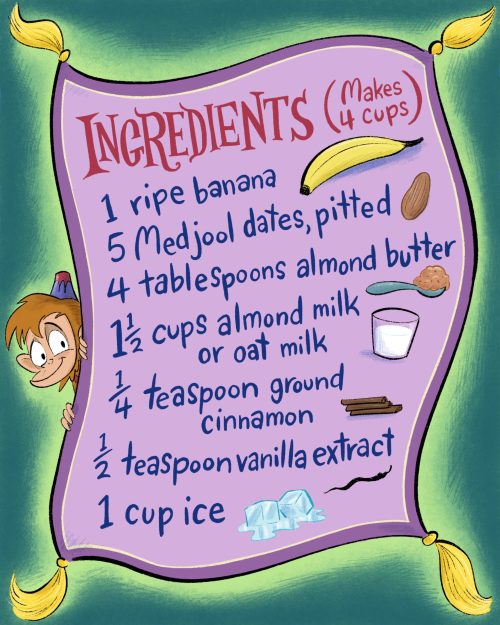 INGREDIENTS (Makes
4 cups)
1 ripe banana
5 Medjool dates, pitted
4 tablespoons almond butter
1 1/2 cups almond milk
or oat milk
1/4 teaspoon ground
cinnamon
1/2 teaspoon vanilla extract
1 cup ice